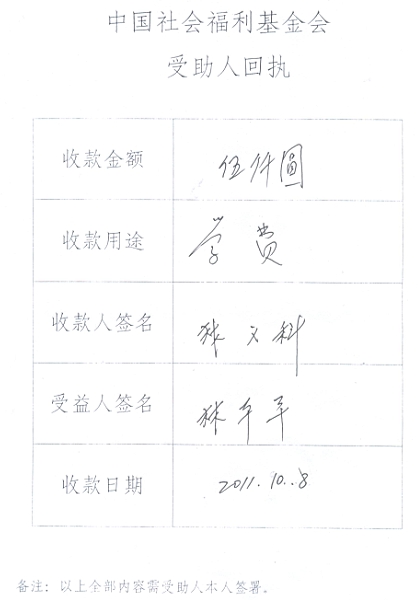 中国社会福利基金会
受助人回执
收款金额 伍仟圆
收款用途 学费
收款人签名 文科
受益人签名
收款日期 2011.10.8
备注：以上全部内容需受助人本人签署。